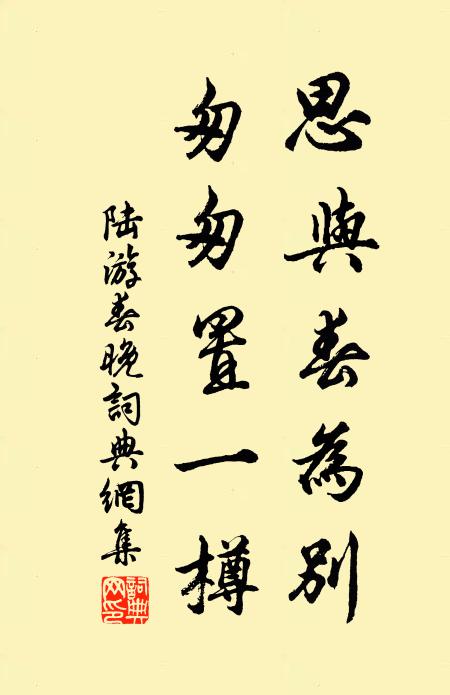 思與春為別
匆匆置一樽
陸游春晚詞典網集
詞典網印